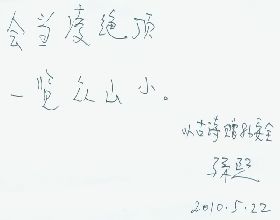 会当凌绝顶
一览众山小。
以古诗赠
2010.5.22